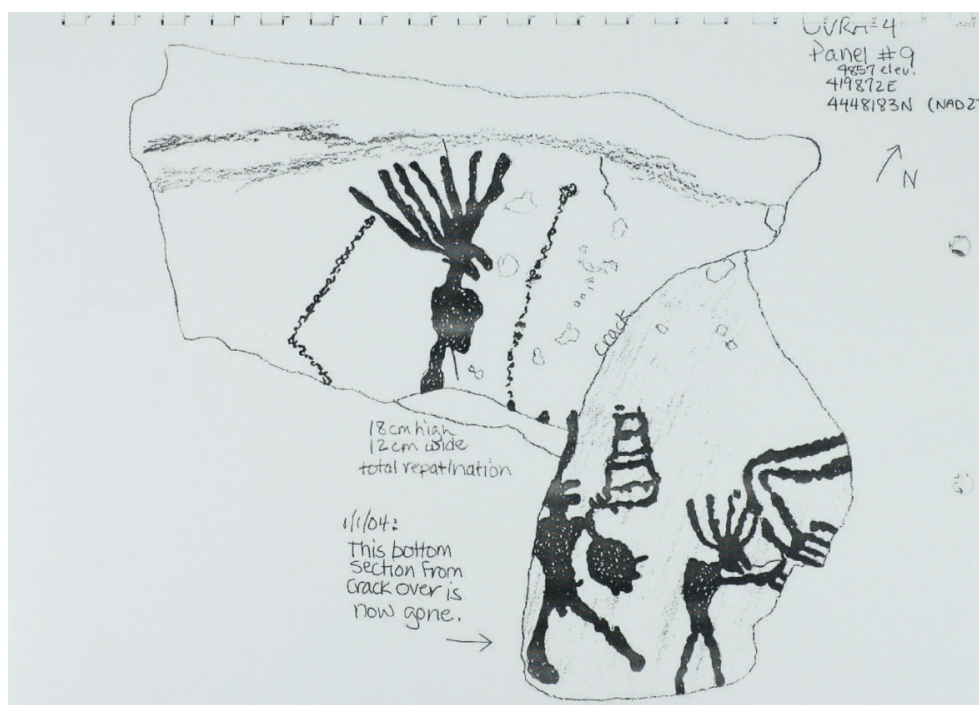 UVRm-4
Panel #9
4857 elev.
419872E
4448183N (NAD27
N
crack
18cm high
12cm wide
total repatination
1/1/04:
This bottom
section from
Crack over is
now gone.